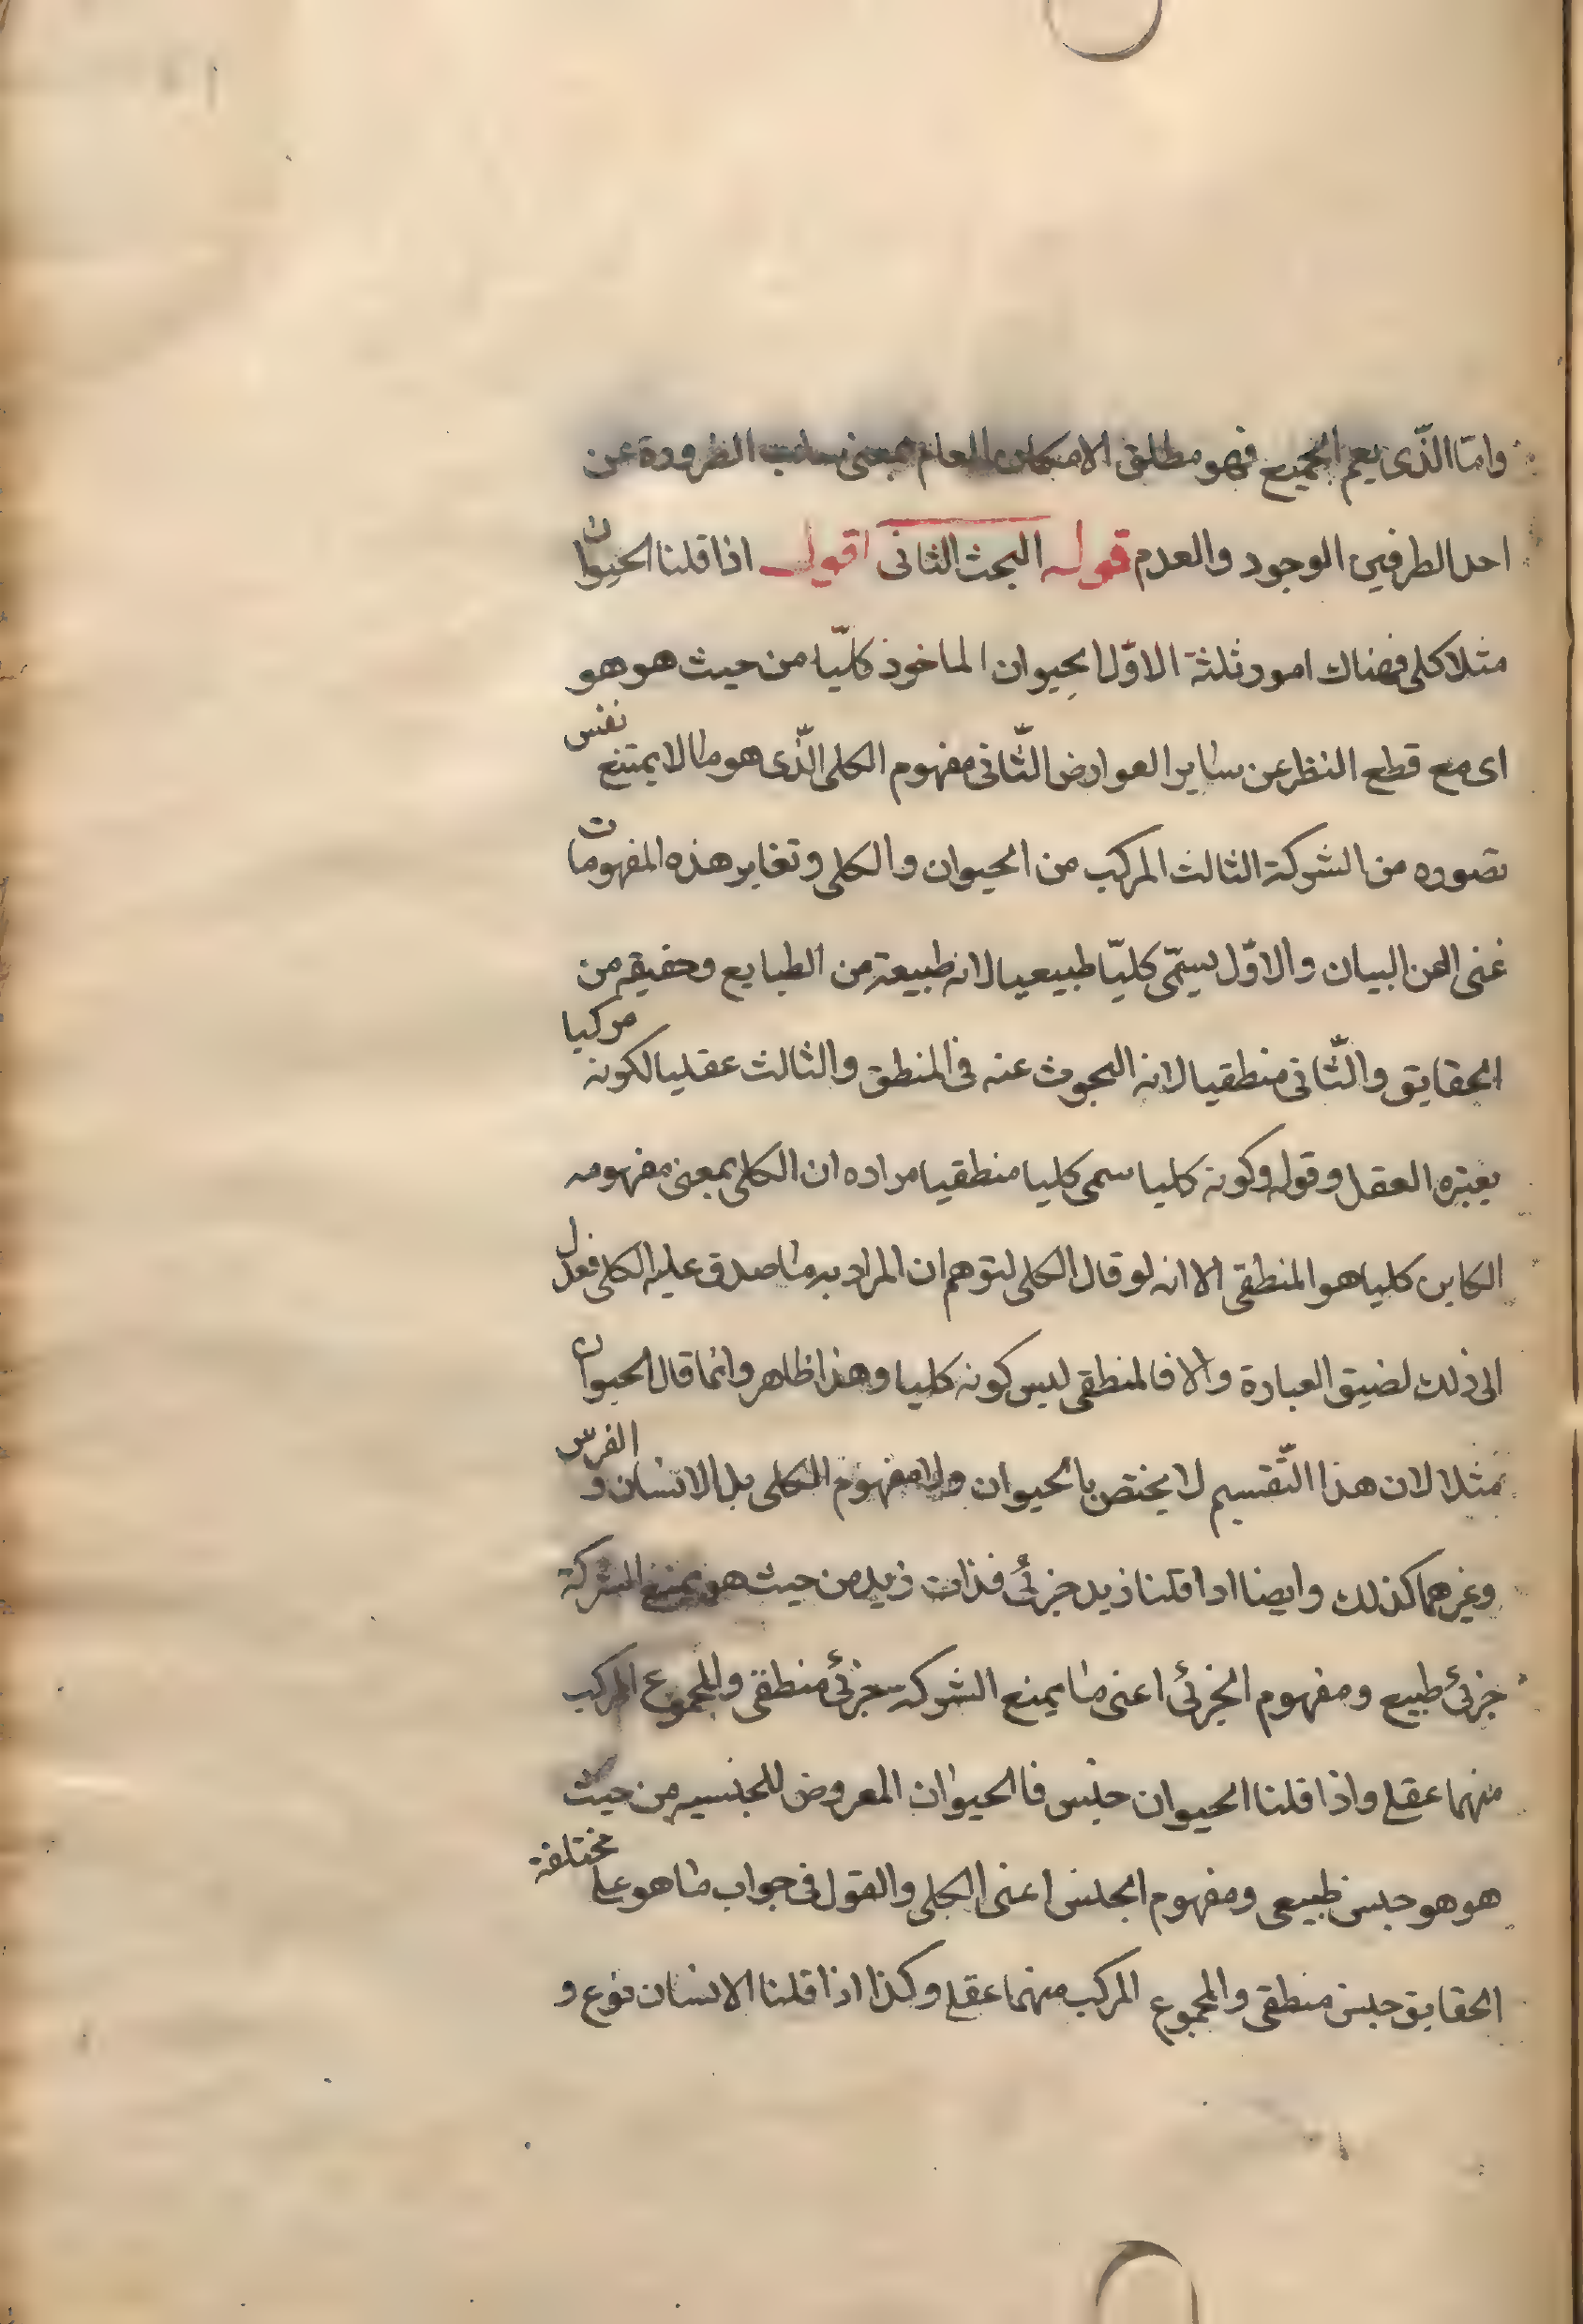 وامّا الذّى يعم الجميع فهو مطلق الامكان العام بمعنى سلب الضرورة عن
احد الطرفين الوجود والعدم قوله البحث الثانى اقول اذا قلنا الحيوان
مثلا كلى فهناك امور ثلثة الاوّل الحيوان الماخوذ كليّا من حيث هو هو
اى مع قطع النظر عن ساير العوارض الثّانى مفهوم الكلى الّذى هو ما لا يمتنع نفس
تصوره من الشركة الثالث المركب من الحيوان والكلى وتغاير هذه المفهومات
غنى عن البيان والاوّل يسمّى كليّا طبيعيا لانه طبيعة من الطبايع وحقيقه من
الحقايق والثّانى منطقيا لانه البحوث عنه فى المنطق والثالث عقليا لكونه مركبا
يعتبره العقل وقوله وكونه كليا سمى كليا منطقيا مراده ان الكلى بمعنى مفهومه
الكاين كليا هو المنطقى الا انه لو قال الكلى لتوهم ان المراد به ما صدق عليه الكلى فعدل
الى ذلك لضيق العبارة والا فالمنطقى ليس كونه كليا وهذا ظاهر وانما قال الحيوان
مثلا لان هذا التّقسيم لا يختص بالحيوان ولا مفهوم الكلى بل الانسان و الفرس
وغيرهما كذلك وايضا اذا قلنا زيد جزئى فذات زيد من حيث هو يمنع الشركة
جزئى طبيع ومفهوم الجزئى اعنى ما يمنع الشركة جزئى منطقى والمجموع المركب
منهما عقلى واذا قلنا الحيوان جنس فالحيوان المعروض للجنسيه من حيث
هو هو جنس طبيعى ومفهوم الجنس اعنى الكلى والمقول فى جواب ما هو على مختلفة
الحقايق جنس منطقى والمجموع المركب منهما عقلى وكذا اذا قلنا الانسان نوع و